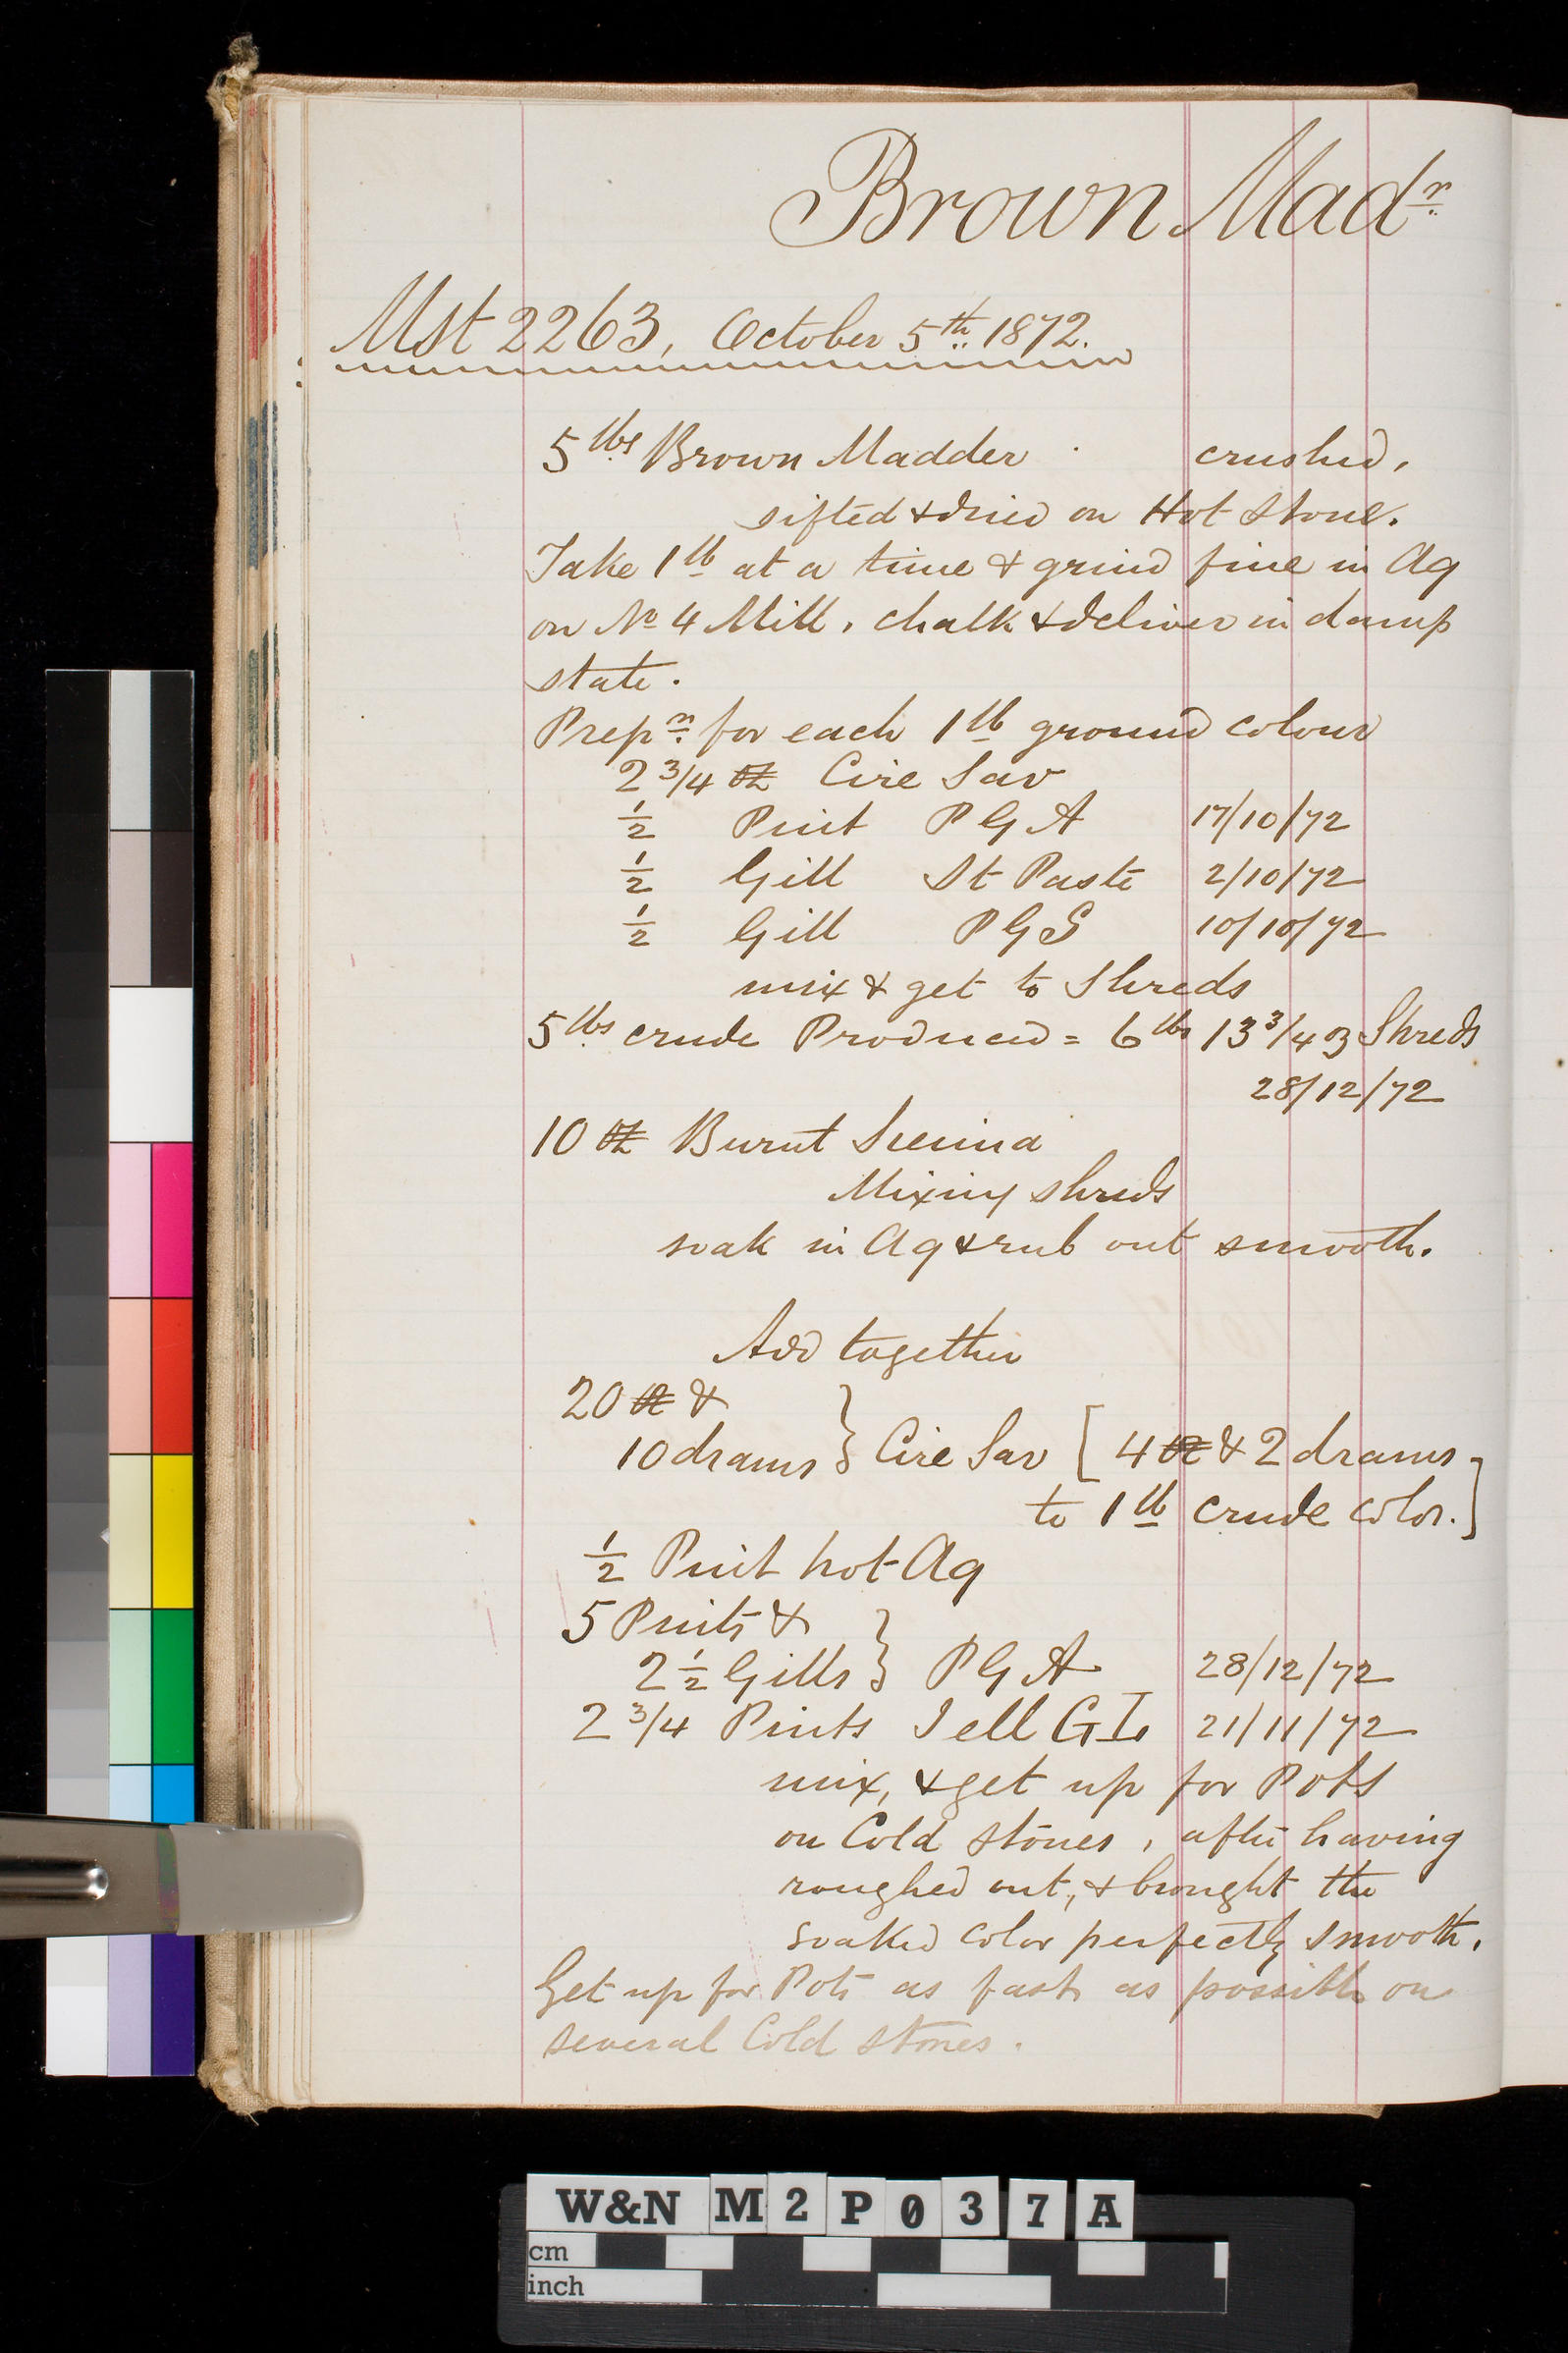 Brown Madr
Mst 2263, October 5th 1872.
5 lbs Brown Madder crushed,
sifted & dried on Hot Stone.
Take 1 lb at a time & grind fine in Aq
on No 4 Mill, chalk & deliver in damp
state.
Prepn for each 1 lb ground colour
2 3/4 oz Cire Sav
1/2 Pint P G A 17/10/72
1/2 Gill St Paste 2/10/72
1/2 Gill P G S 10/10/72
mix & get to Shreds
5 lbs crude Produced = 6 lbs 13 3/4 oz Shreds
28/12/72
10 oz Burnt Sienna
Mixing shreds
soak in Aq & rub out smooth.
Add together
20 oz &
10 drams } Cire Sav [ 4 oz & 2 drams
to 1 lb crude color. ]
1/2 Pint hot Aq
5 Pints &
2 1/2 Gills } P G A 28/12/72
2 3/4 Pints Jell G I. 21/11/72
mix, & get up for Pots
on Cold Stones, after having
roughed out, & brought the
soaked color perfectly smooth.
Get up for Pots as fast as possible on
several Cold Stones.
W&N M2P037A
cm
inch